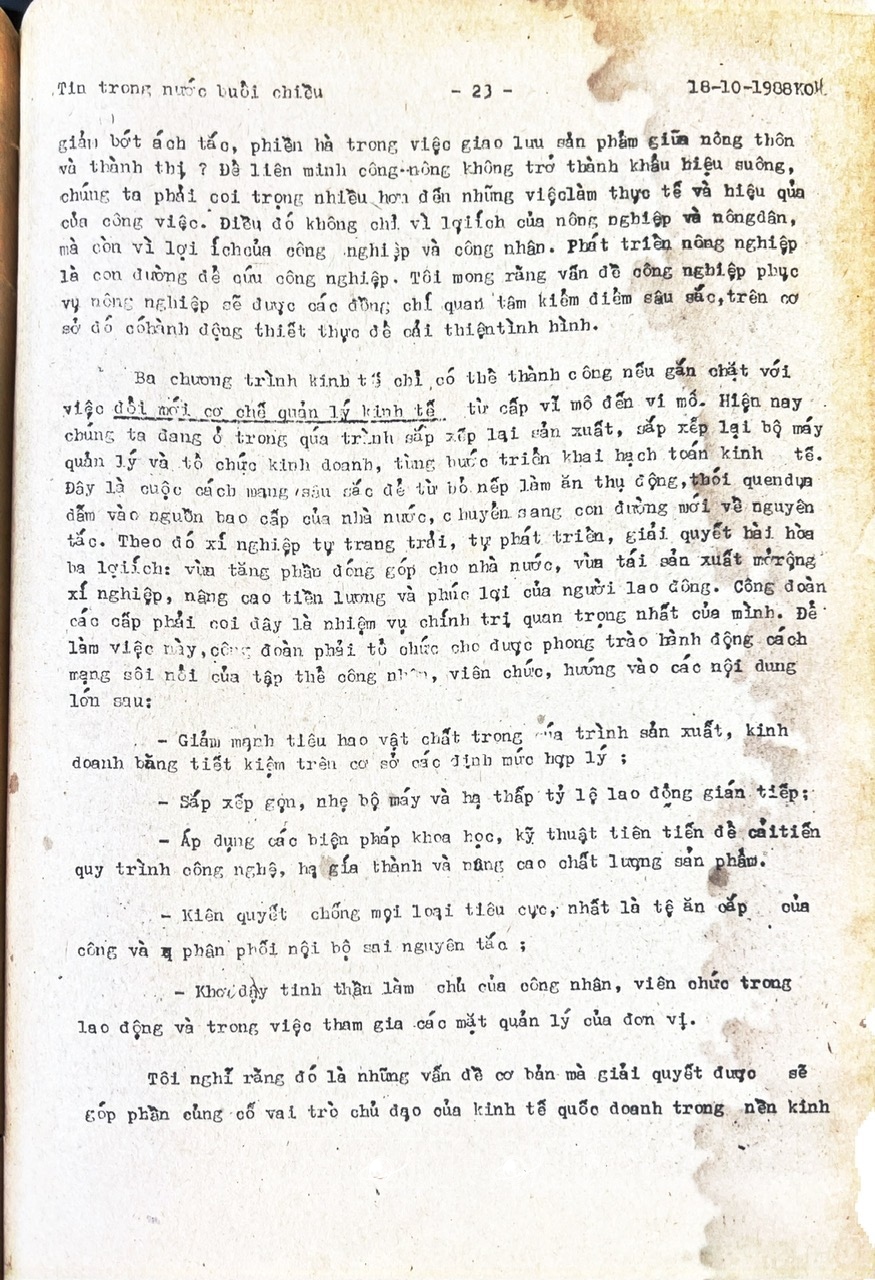 Tin trong nước buổi chiều - 23 - 18-10-1988 KOH
giảm bớt ách tắc, phiền hà trong việc giao lưu sản phẩm giữa nông thôn
và thành thị ? Để liên minh công-nông không trở thành khẩu hiệu suông,
chúng ta phải coi trọng nhiều hơn đến những việclàm thực tế và hiệu qủa
của công việc. Điều đó không chỉ vì lợiích của nông nghiệp và nôngdân,
mà còn vì lợi íchcủa công nghiệp và công nhân. Phát triển nông nghiệp
là con đường để cứu công nghiệp. Tôi mong rằng vấn đề công nghiệp phục
vụ nông nghiệp sẽ được các đồng chí quan tâm kiểm điểm sâu sắc,trên cơ
sở đó cóhành động thiết thực để cải thiệntình hình.
Ba chương trình kinh tế chỉ có thể thành công nếu gắn chặt với
việc đổi mới cơ chế quản lý kinh tế từ cấp vĩ mô đến vi mố. Hiện nay
chúng ta đang ở trong qúa trình sắp xếp lại sản xuất, sắp xếp lại bộ máy
quản lý và tổ chức kinh doanh, từng bước triển khai hạch toán kinh tế.
Đây là cuộc cách mạng sâu sắc để từ bỏ nếp làm ăn thụ động,thói quendựa
dẫm vào nguồn bao cấp của nhà nước, chuyển sang con đường mới về nguyên
tắc. Theo đó xí nghiệp tự trang trải, tự phát triển, giải quyết hài hòa
ba lợiích: vừa tăng phần đóng góp cho nhà nước, vừa tái sản xuất mởrộng
xí nghiệp, nâng cao tiền lương và phúc lợi của người lao động. Công đoàn
các cấp phải coi đây là nhiệm vụ chính trị quan trọng nhất của mình. Để
làm việc này,công đoàn phải tổ chức cho được phong trào hành động cách
mạng sôi nổi của tập thể công nhân, viên chức, hướng vào các nội dung
lớn sau:
- Giảm mạnh tiêu hao vật chất trong qúa trình sản xuất, kinh
doanh bằng tiết kiệm trên cơ sở các định mức hợp lý ;
- Sắp xếp gọn, nhẹ bộ máy và hạ thấp tỷ lệ lao động gián tiếp;
- Áp dụng các biện pháp khoa học, kỹ thuật tiên tiến để cảitiến
quy trình công nghệ, hạ gía thành và nâng cao chất lượng sản phẩm.
- Kiên quyết chống mọi loại tiêu cực, nhất là tệ ăn cắp của
công và phân phối nội bộ sai nguyên tắc ;
- Khơi dậy tinh thần làm chủ của công nhân, viên chức trong
lao động và trong việc tham gia các mặt quản lý của đơn vị.
Tôi nghĩ rằng đó là những vấn đề cơ bản mà giải quyết được sẽ
góp phần củng cố vai trò chủ đạo của kinh tế quốc doanh trong nền kinh